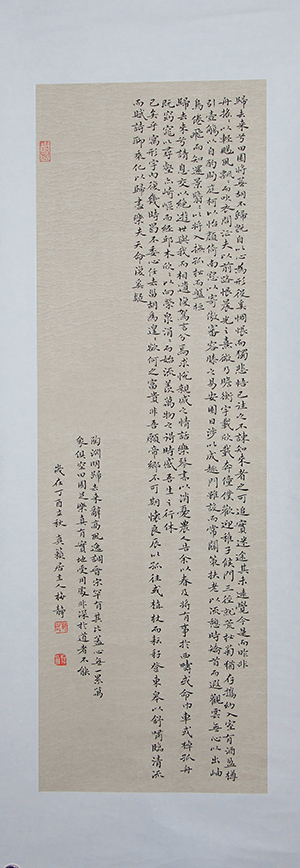 歸去來兮田園將蕪胡不歸既自以心為形役奚惆悵而獨悲悟已往之不諫知來者之可追實迷途其未遠覺今是而昨非
舟搖搖以輕颺風飄飄而吹衣問征夫以前路恨晨光之熹微乃瞻衡宇載欣載奔僮僕歡迎稚子候門三徑就荒松菊猶存攜幼入室有酒盈樽
引壺觴以自酌眄庭柯以怡顏倚南窗以寄傲審容膝之易安園日涉以成趣門雖設而常關策扶老以流憩時矯首而遐觀雲無心以出岫
鳥倦飛而知還景翳翳以將入撫孤松而盤桓
歸去來兮請息交以絕遊世與我而相遺復駕言兮焉求悅親戚之情話樂琴書以消憂農人告余以春及將有事于西疇或命巾車或棹孤舟
既窈窕以尋壑亦崎嶇而經邱木欣欣以向榮泉涓涓而始流羨萬物之得時感吾生之行休
已矣乎寓形宇內復幾時曷不委心任去留胡為遑遑欲何之富貴非吾願帝鄉不可期懷良辰以孤往或植杖而耘耔登東皋以舒嘯臨清流
而賦詩聊乘化以歸盡樂夫天命復奚疑
陶淵明歸去來辭高風逸調晉宋罕有其比蓋心無一累萬
象俱空田園足樂真有實地受用處非深於道者不能
歲在丁酉之秋 居主人 梅靜